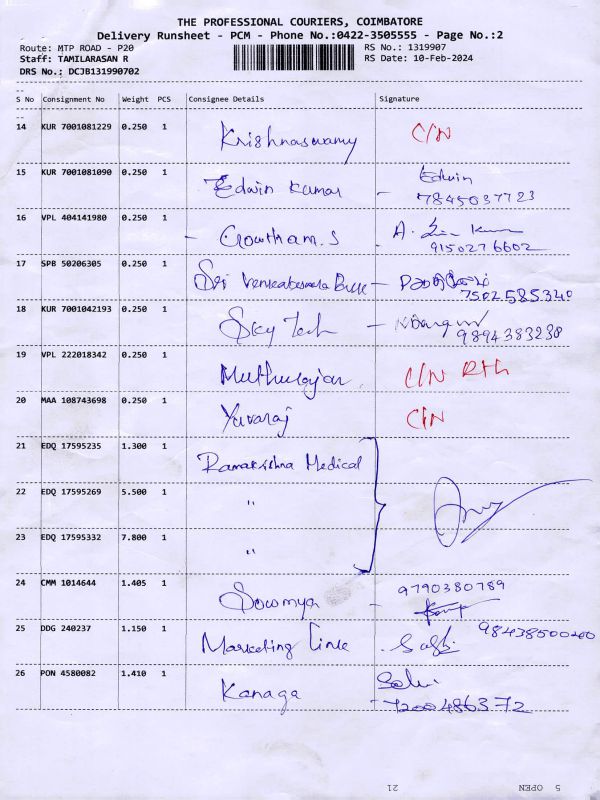 THE PROFESSIONAL COURIERS, COIMBATORE
Delivery Runsheet - PCM - Phone No.:0422-3505555 - Page No.:2
Route: MTP ROAD - P20 RS No.: 1319907
Staff: TAMILARASAN R RS Date: 10-Feb-2024
DRS No.: DCJB131990702
S No Consignment No Weight PCS Consignee Details Signature
14 KUR 7001081229 0.250 1 Krishnaswamy C/N
15 KUR 7001081090 0.250 1 Edwin Kumar - Edwin
7845037723
16 VPL 404141980 0.250 1 - Gowtham.S A.
9150276602
17 SPB 50206305 0.250 1 Sri -
7502585340
18 KUR 7001042193 0.250 1 Sky Tech -
9894383238
19 VPL 222018342 0.250 1 Muthurajan C/N
20 MAA 108743698 0.250 1 Yuvaraj C/N
21 EDQ 17595235 1.300 1 Ramakrishna Medical
22 EDQ 17595269 5.500 1 "
23 EDQ 17595332 7.800 1 "
24 CMM 1014644 1.405 1 Sowmya - 9790380789
25 DDG 240237 1.150 1 Marketing
26 PON 4580082 1.410 1 Kanaga
7200486372
21 5 OPEN